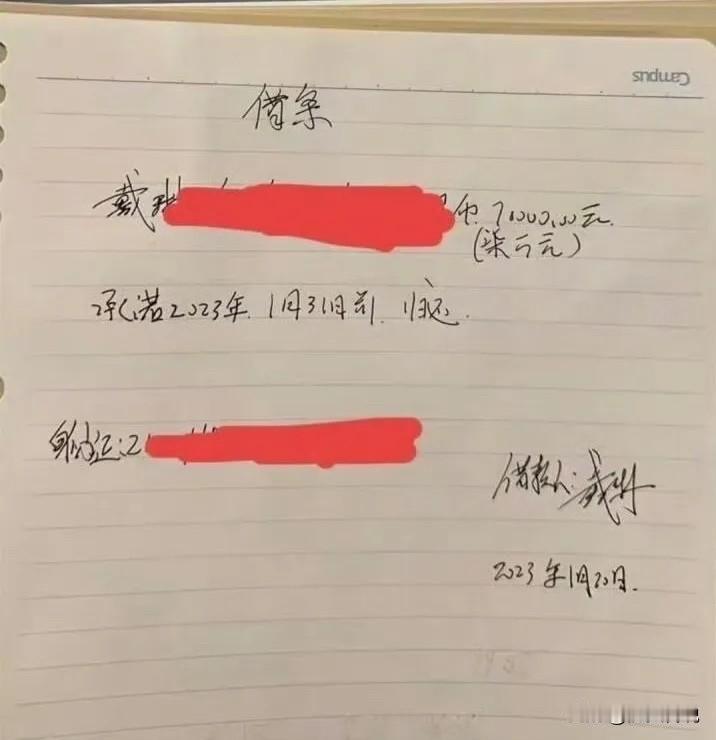 Campus
借条
戴琳 币 70000.00元.
(柒万元)
承诺2023年1月31日前归还.
身份证:2
借款人:戴琳
2023年1月20日.